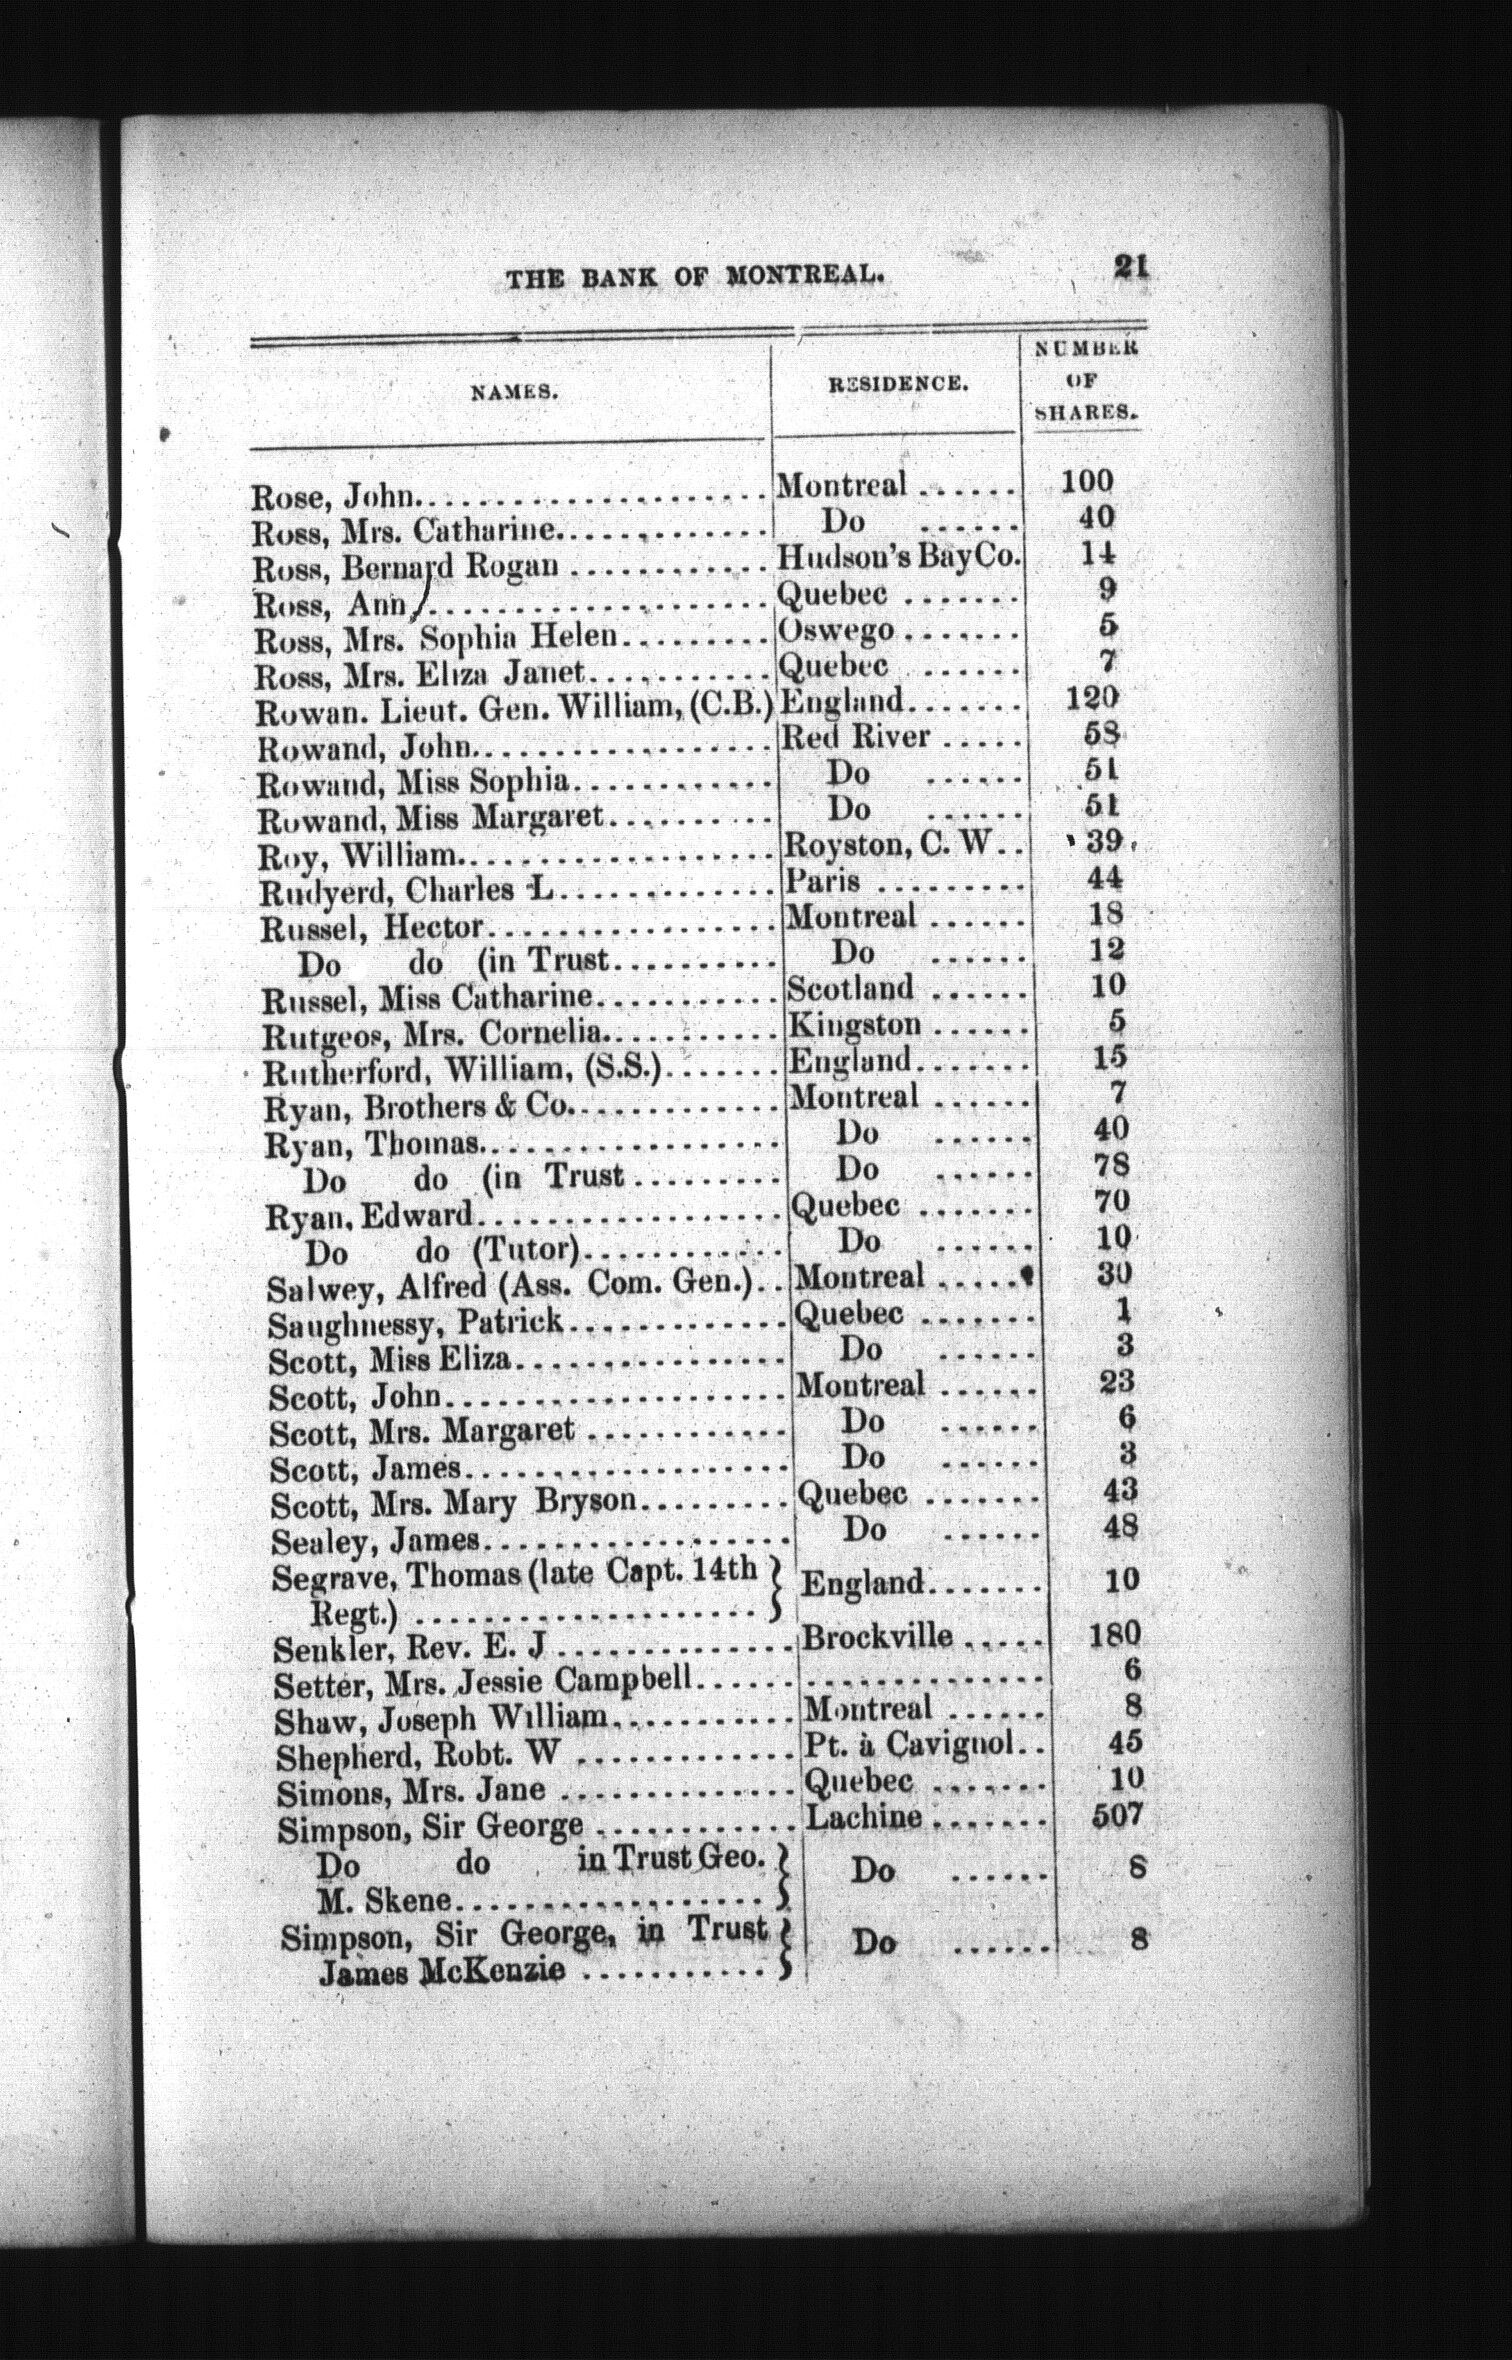 THE BANK OF MONTREAL. 21
NAMES. RESIDENCE. NUMBER OF SHARES.
Rose, John.................... Montreal ...... 100
Ross, Mrs. Catharine............ Do ...... 40
Ross, Bernard Rogan ............ Hudson's Bay Co. 14
Ross, Ann.................... Quebec ....... 9
Ross, Mrs. Sophia Helen......... Oswego....... 5
Ross, Mrs. Eliza Janet........... Quebec ...... 7
Rowan. Lieut. Gen. William, (C.B.) England....... 120
Rowand, John.................. Red River ..... 58
Rowand, Miss Sophia............ Do ...... 51
Rowand, Miss Margaret.......... Do ...... 51
Roy, William................... Royston, C. W.. 39
Rudyerd, Charles L............. Paris ......... 44
Russel, Hector................. Montreal ...... 18
Do do (in Trust.......... Do ...... 12
Russel, Miss Catharine........... Scotland ...... 10
Rutgeos, Mrs. Cornelia........... Kingston ...... 5
Rutherford, William, (S.S.)....... England....... 15
Ryan, Brothers & Co............. Montreal ...... 7
Ryan, Thomas.................. Do ...... 40
Do do (in Trust ......... Do ...... 78
Ryan, Edward.................. Quebec ....... 70
Do do (Tutor)............ Do ...... 10
Salwey, Alfred (Ass. Com. Gen.).. Montreal ...... 30
Saughnessy, Patrick............. Quebec ....... 1
Scott, Miss Eliza................ Do ...... 3
Scott, John.................... Montreal ...... 23
Scott, Mrs. Margaret ............ Do ...... 6
Scott, James................... Do ...... 3
Scott, Mrs. Mary Bryson......... Quebec ....... 43
Sealey, James.................. Do ...... 48
Segrave, Thomas (late Capt. 14th
Regt.) .................... England....... 10
Senkler, Rev. E. J .............. Brockville ..... 180
Setter, Mrs. Jessie Campbell...... .............. 6
Shaw, Joseph William........... Montreal ...... 8
Shepherd, Robt. W ............. Pt. à Cavignol.. 45
Simons, Mrs. Jane .............. Quebec ....... 10
Simpson, Sir George ............ Lachine....... 507
Do do in Trust Geo.
M. Skene.................. Do ...... 8
Simpson, Sir George, in Trust
James McKenzie ........... Do ...... 8